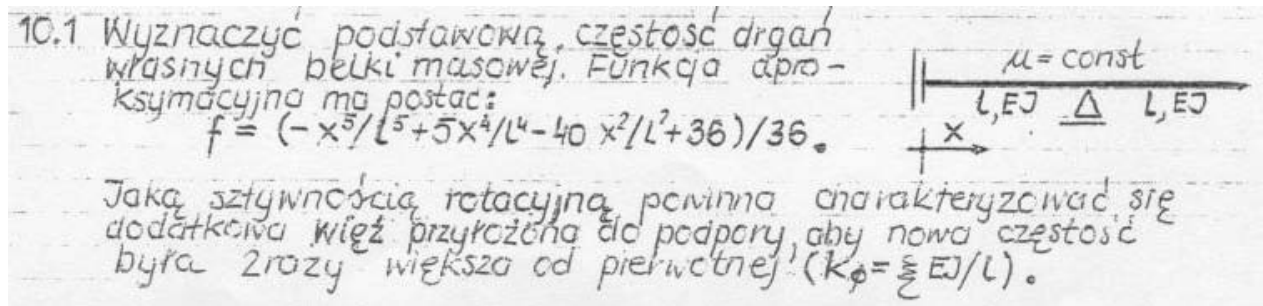 10.1 Wyznaczyć podstawową częstość drgań
własnych belki masowej. Funkcja apro-
ksymacyjna ma postać:
f = (-x⁵/l⁵+5x⁴/l⁴-40 x²/l²+36)/36.
μ = const
l, EJ l, EJ
x
Jaką sztywnością rotacyjną powinna charakteryzować się
dodatkowa więź przyłożona do podpory, aby nowa częstość
była 2 razy większa od pierwotnej (kφ = ξ EJ/l).